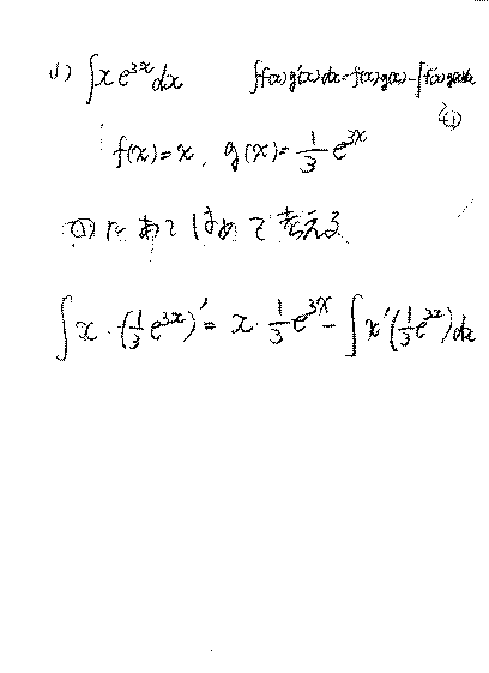 (1) ∫x e^{3x}dx  ∫f(x)g'(x)dx=f(x)g(x)-∫f'(x)g(x)dx
f(x)=x, g(x)=\frac{1}{3}e^{3x}
①にあてはめて考える
∫x・(\frac{1}{3}e^{3x})'= x・\frac{1}{3}e^{3x}-∫x'(\frac{1}{3}e^{3x})dx